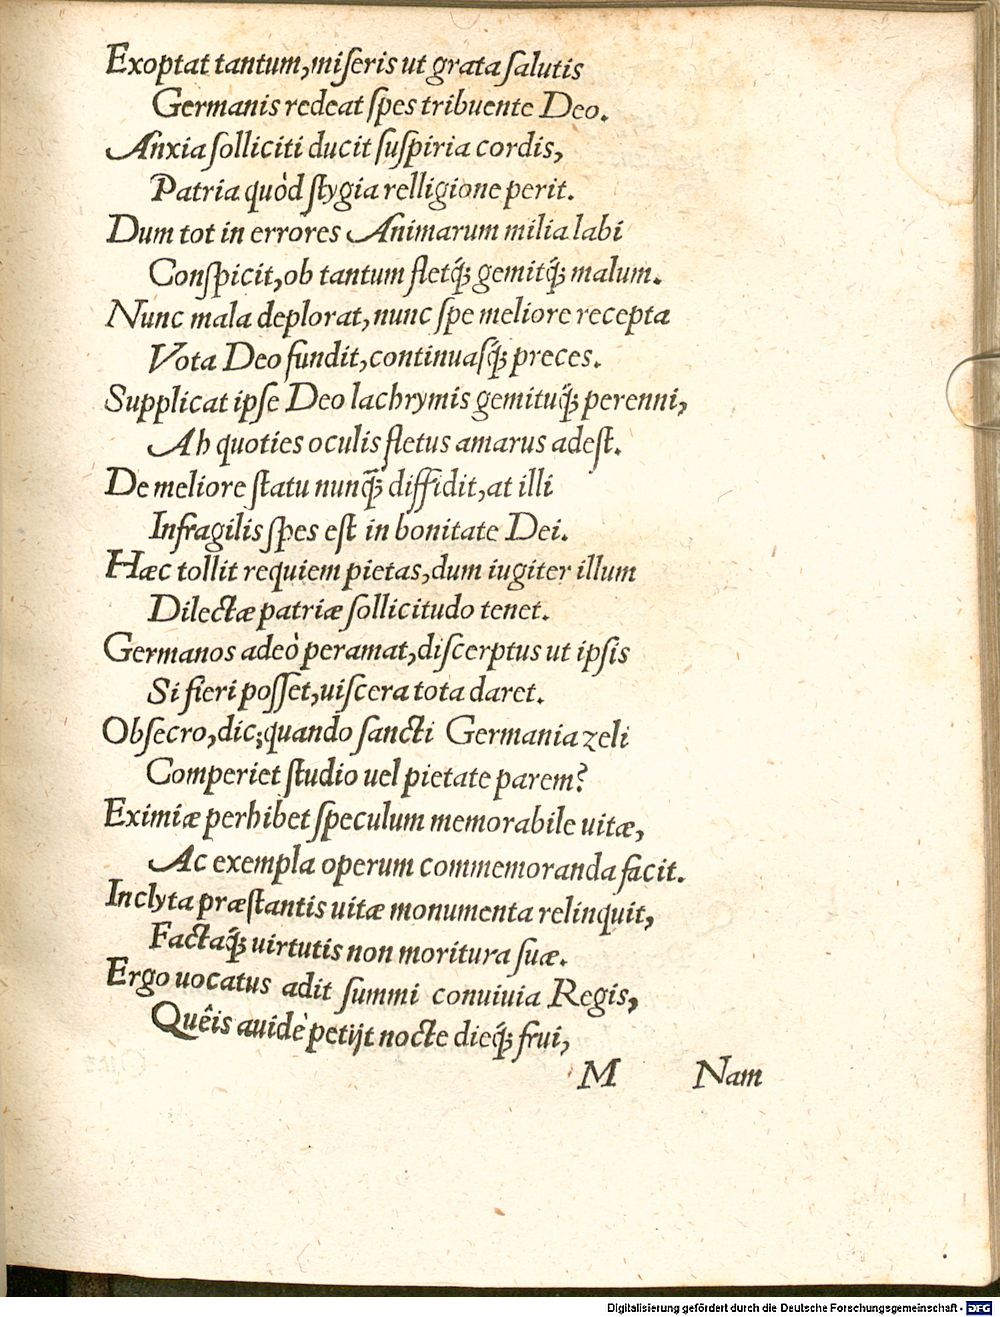 Exoptat tantum, miſeris ut grata ſalutis
Germanis redeat ſpes tribuente Deo.
Anxia ſolliciti ducit ſuſpiria cordis,
Patria quòd ſtygia relligione perit.
Dum tot in errores Animarum milia labi
Conſpicit, ob tantum fletq́; gemitq́; malum.
Nunc mala deplorat, nunc ſpe meliore recepta
Vota Deo fundit, continuaſq́; preces.
Supplicat ipſe Deo lachrymis gemituq́; perenni,
Ah quoties oculis fletus amarus adeſt.
De meliore ſtatu nunq̃; diffidit, at illi
Infragilis ſpes eſt in bonitate Dei.
Hæc tollit requiem pietas, dum iugiter illum
Dilectæ patriæ ſollicitudo tenet.
Germanos adeò peramat, diſcerptus ut ipſis
Si fieri poſſet, uiſcera tota daret.
Obſecro, dic; quando ſancti Germania zeli
Comperiet ſtudio uel pietate parem?
Eximiæ perhibet ſpeculum memorabile uitæ,
Ac exempla operum commemoranda facit.
Inclyta præſtantis uitæ monumenta relinquit,
Factaq́; uirtutis non moritura ſuæ.
Ergo uocatus adit ſummi conuiuia Regis,
Quêis auidè petijt nocte dieq́; frui,
M Nam
Digitalisierung gefördert durch die Deutsche Forschungsgemeinschaft - DFG